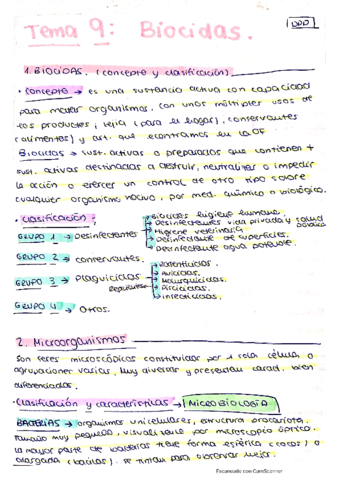 Tema 9: Biocidas.
DDD
1. BIOCIDAS. (concepto y clasificación)
• Concepto → es una sustancia activa con capacidad
para matar organismos. con unos múltiples usos de
los productos, lejía (para el hogar), conservantes
(alimentos) y art. que econtramos en la OF.
Biocidas → sust. activas o preparados que contienen +
sust. activas destinadas a destruir, neutralizar o impedir
la acción o ejercer un control de otro tipo sobre
cualquier organismo nocivo, por med. químico o biológico.
• Clasificación:
GRUPO 1 → Desinfectantes
Biocidas higiene humana.
Desinfectantes vida privada y salud pública
Higiene veterinaria
Desinfectante de superficies.
Desinfectante agua potable.
GRUPO 2 → conservantes.
GRUPO 3 → Plaguicidas
Rodenticidas.
Avicidas.
Molusquicidas.
Piscicidas.
Insecticidas.
GRUPO 4 → Otros.
2. Microorganismos
Son seres microscópicos constituidos por 1 sola célula o
agrupaciones varias, muy diversas y presentan caract. bien
diferenciadas.
• Clasificación y características → MICROBIOLOGÍA
BACTERIAS → organismos unicelulares, estructura procariota.
Tamaño muy pequeño, visualizable por microscopio óptico.
La mayor parte de bacterias tiene forma esférica (cocos) o
alargada (bacilos). Se tintan para observar mejor.
Escaneado con CamScanner